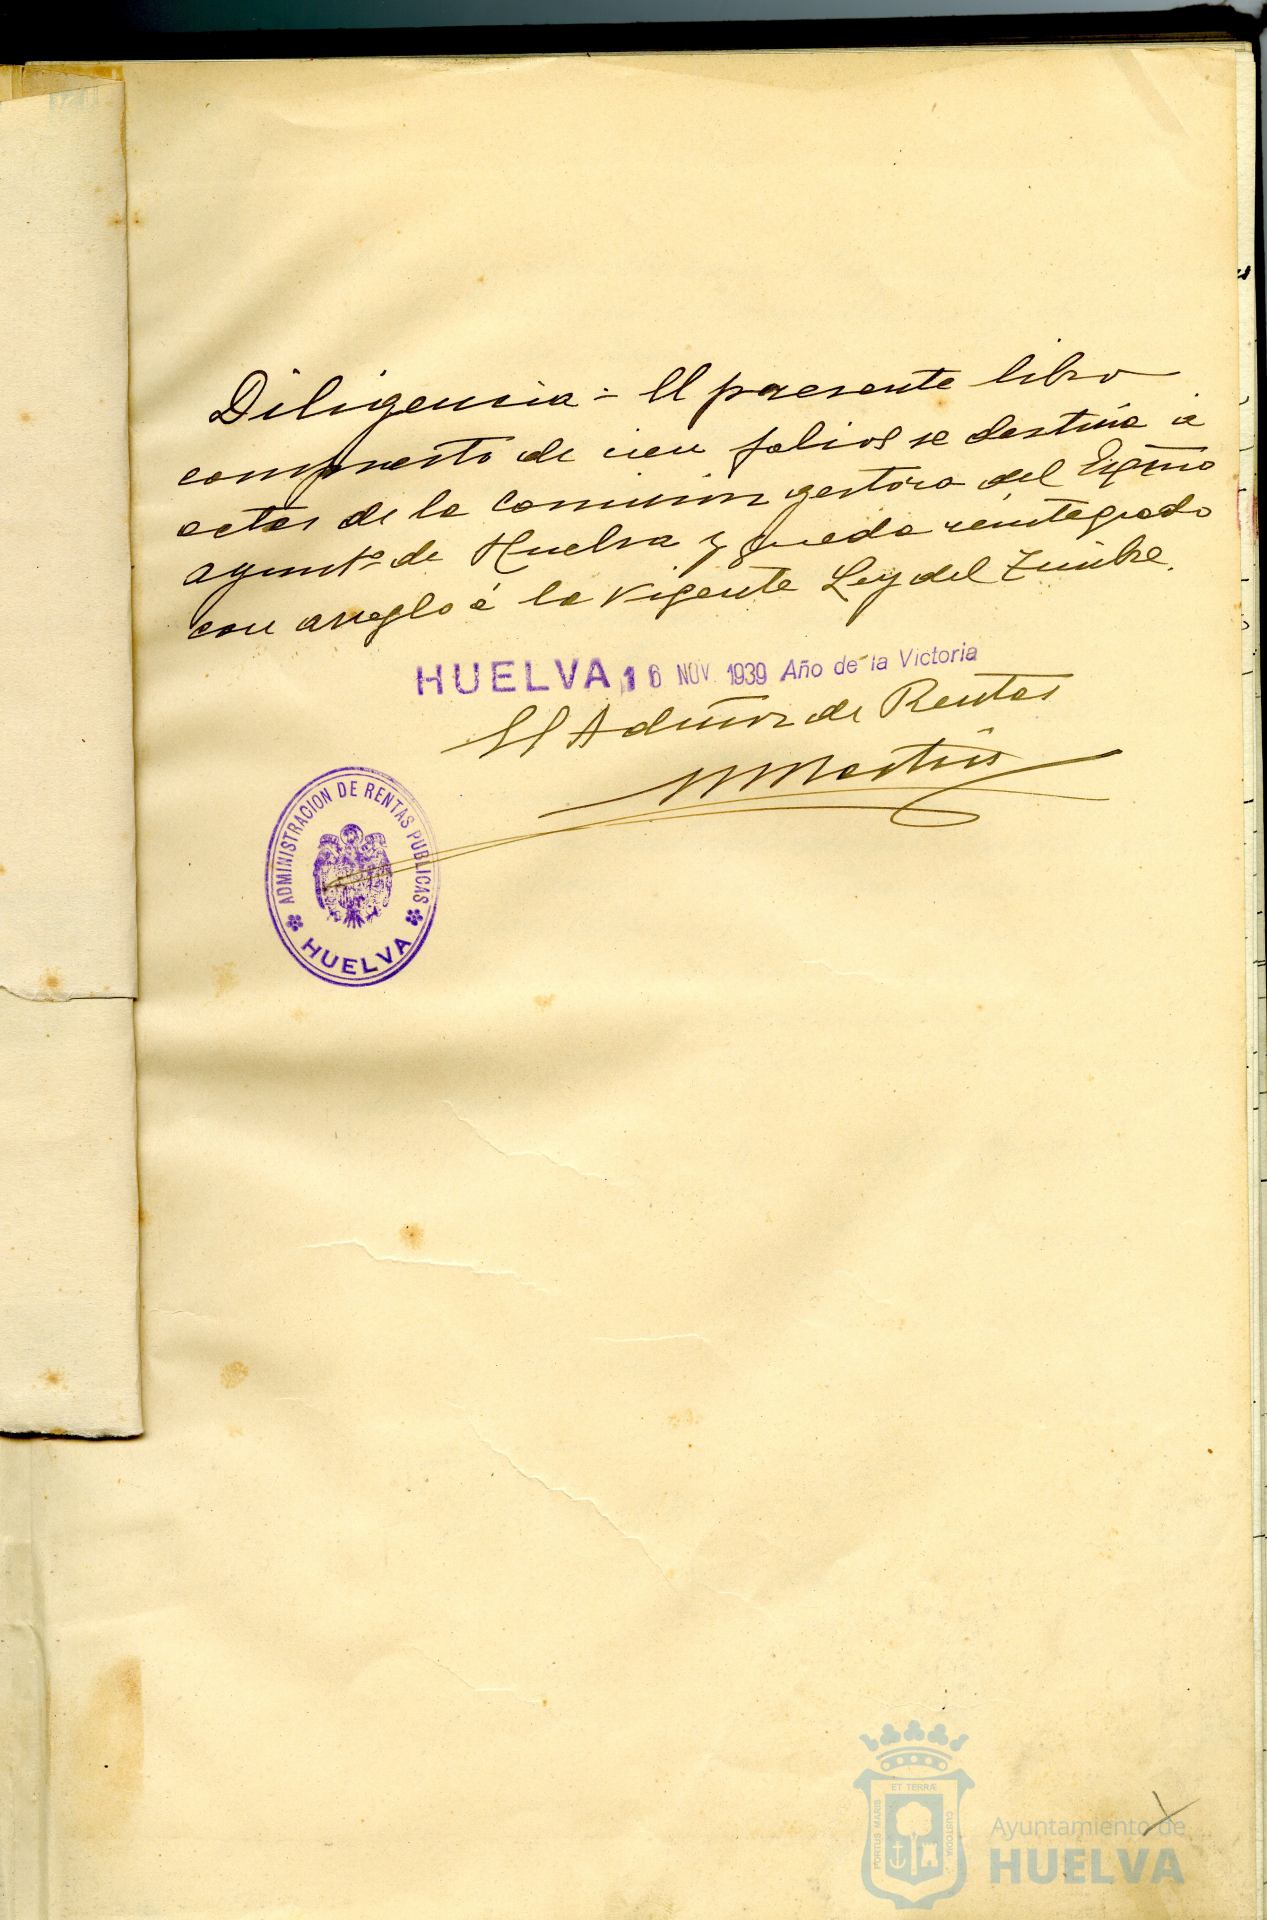 Diligencia = El presente libro
compuesto de cien folios se destina á
actas de la Comision gestora del Exmo
ayuntº de Huelva y queda reintegrado
con arreglo á la vigente Ley del Timbre.
HUELVA 16 NOV. 1939 Año de la Victoria
El Admor de Rentas
M Martin
ADMINISTRACION DE RENTAS PUBLICAS
HUELVA
ET TERRÆ
PORTUS MARIS
CUSTODIA
Ayuntamiento de
HUELVA